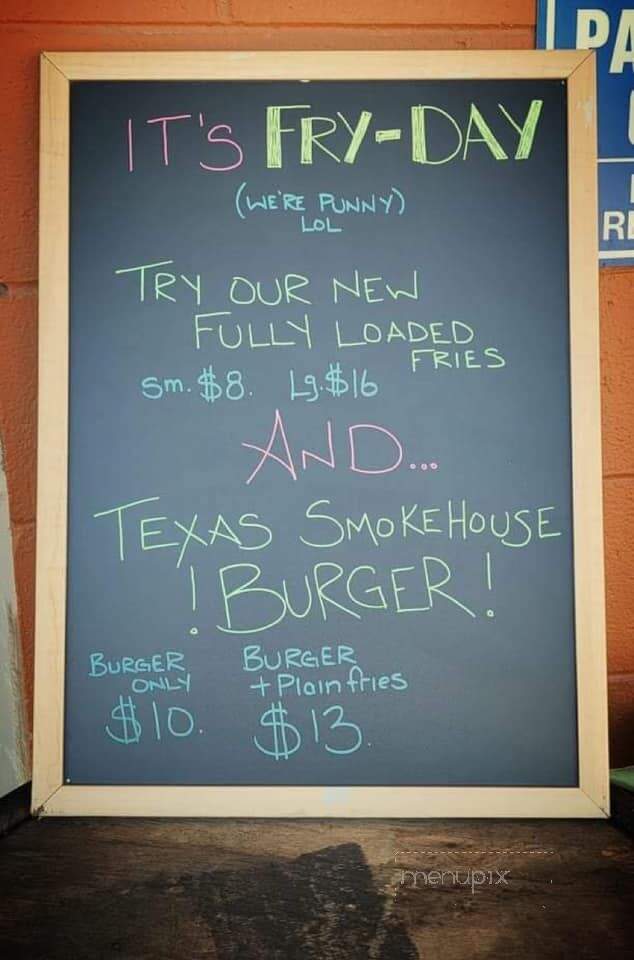 IT'S FRY-DAY
(WE'RE PUNNY)
LOL
TRY OUR NEW
FULLY LOADED
FRIES
Sm. $8. Lg. $16
AND...
TEXAS SMOKEHOUSE
! BURGER!
BURGER
ONLY
$10.
BURGER
+ Plain fries
$13.
PA
RE
menupix